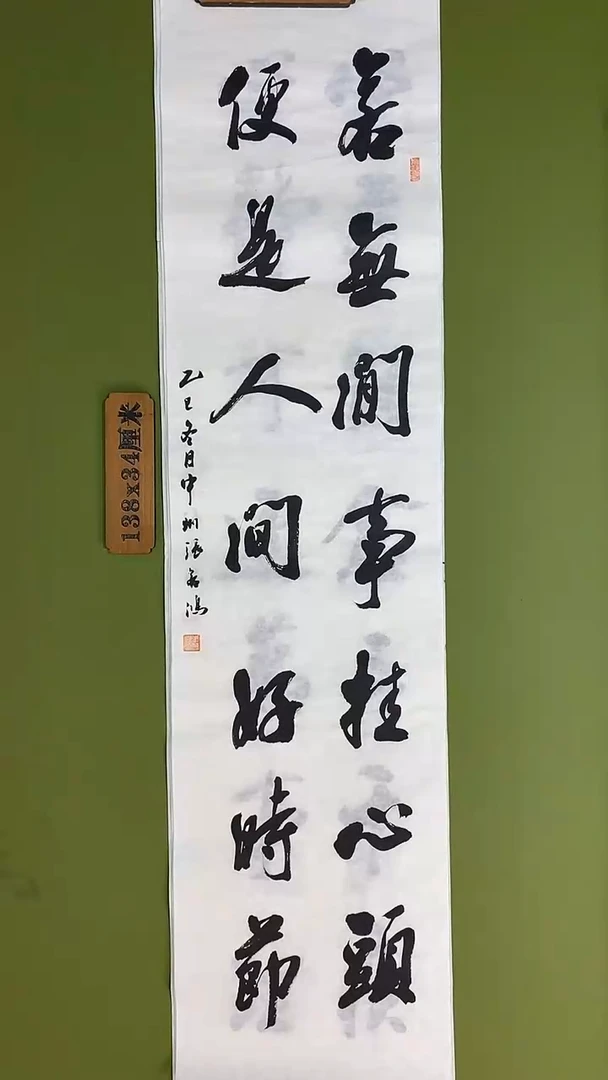 若無閒事挂心頭
便是人間好時節
乙巳冬月中州張若鴻
138x34厘米